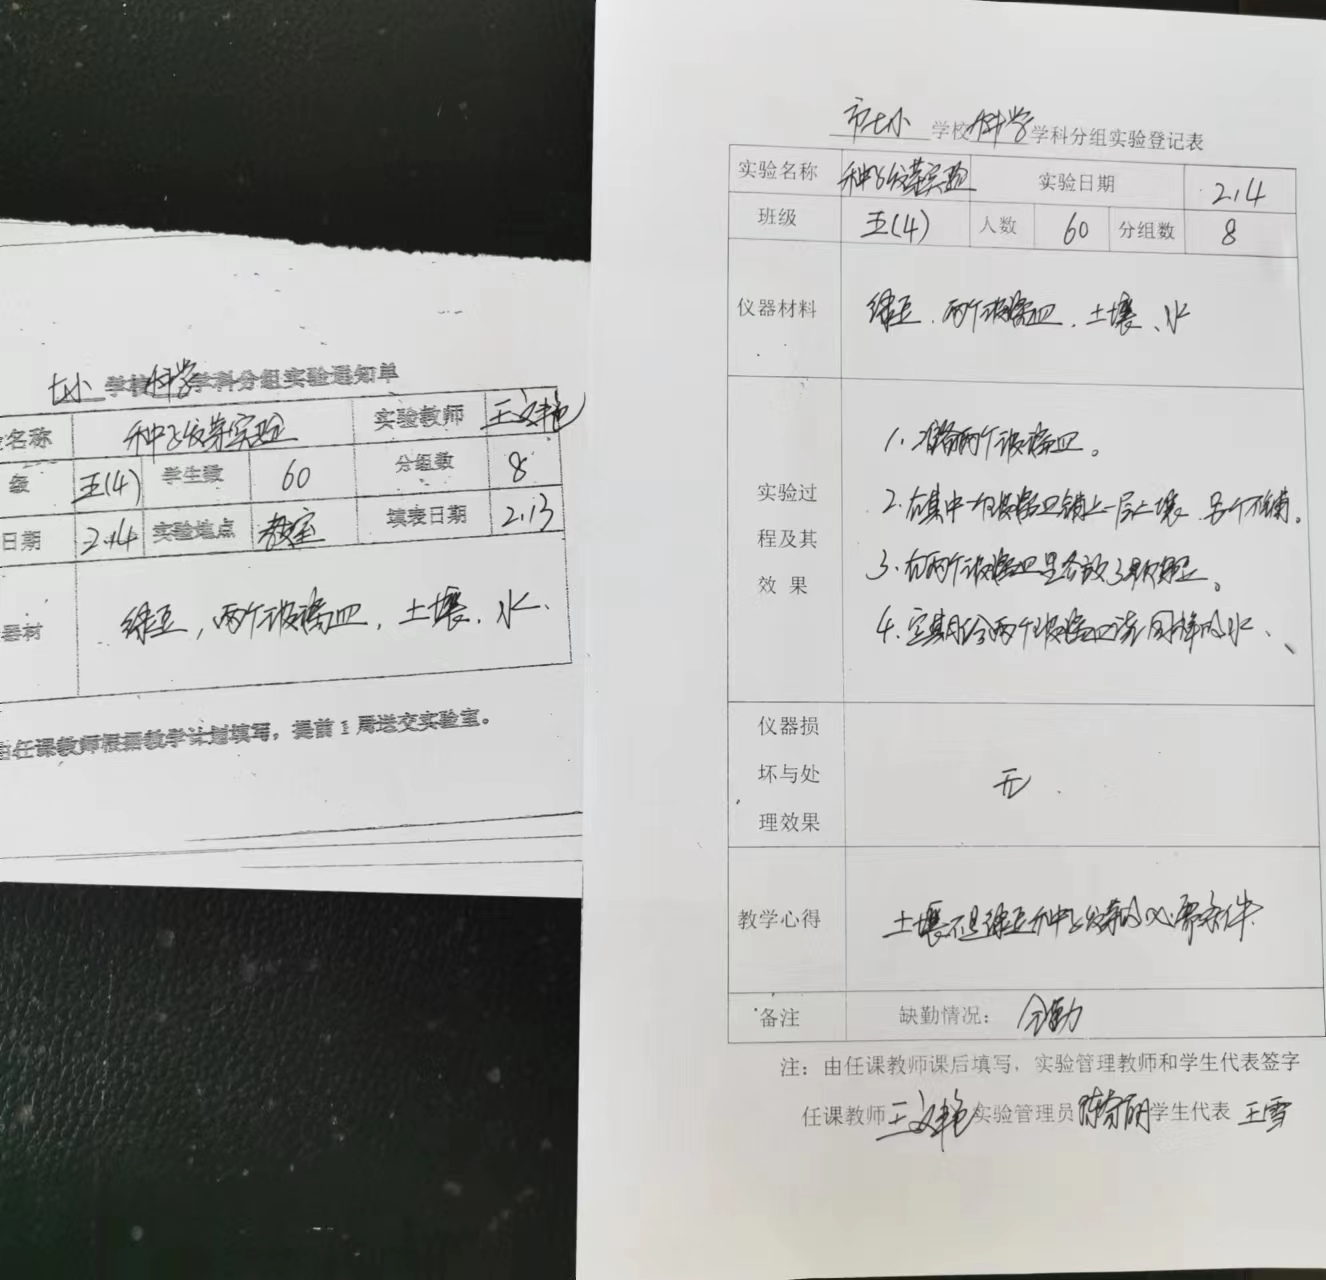 七小 学校科学学科分组实验通知单
名称 种子发芽实验 实验教师 王文艳
级 五(4) 学生数 60 分组数 8
日期 2.14 实验地点 教室 填表日期 2.13
器材 绿豆，两个玻璃皿，土壤、水、
由任课教师根据教学计划填写，提前1周送交实验室。
市七小 学校科学学科分组实验登记表
实验名称 种子发芽实验 实验日期 2.14
班级 五(4) 人数 60 分组数 8
仪器材料 绿豆、两个玻璃皿、土壤、水
实验过
程及其
效果
1、准备两个玻璃皿。
2、在其中一个玻璃皿铺上一层土壤，另个不铺。
3、在两个玻璃皿里各放3颗绿豆。
4、定期给两个玻璃皿浇同样的水、
仪器损
坏与处
理效果
无
教学心得 土壤不是绿豆种子发芽的必要条件
备注 缺勤情况： 全勤
注：由任课教师课后填写，实验管理教师和学生代表签字
任课教师 王文艳 实验管理员 学生代表 王雪